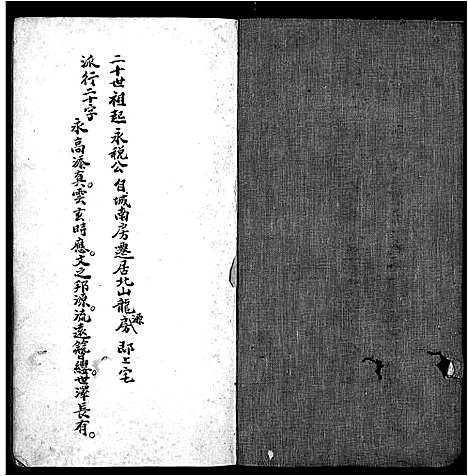 二十世祖起永税公自城南房遷居北山龍源房邵上宅
派行二十字
永高添真。雲玄時應。文之邦源。流遠簪纓。世澤長有。